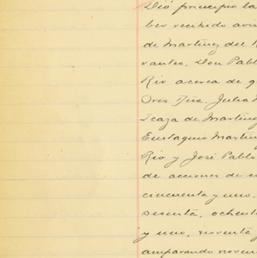 Dió principio la
ber recibido
de Martínez del
rantes, Don Pabl
Rio acerca de q
Dres. Jua. Julia
Icaza de Martíne
Eustaquio Martín
Rio y José Pablo
de acciones de
cincuenta y uno,
sesenta, ochent
y uno, noventa y
amparando noven